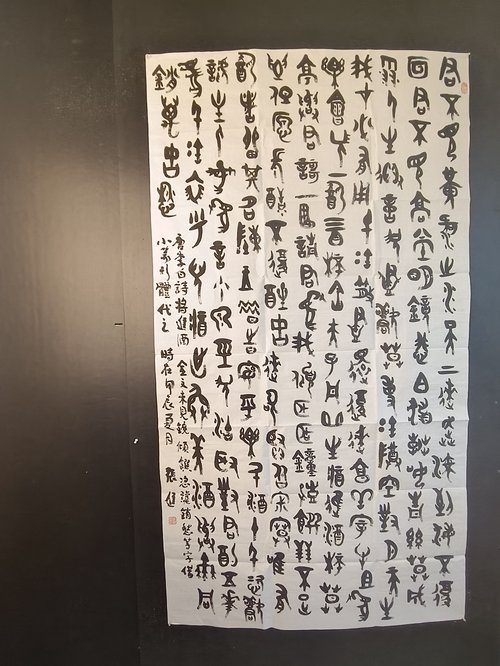 君不見黃河之水天上來奔流到海不復
回君不見高堂明鏡悲白髮朝如青絲莫成
雪人生得意須盡歡莫使金尊空對月天生
我才必有用千金散盡還復來烹羊宰牛且爲
樂會須一飲三百杯岑夫子丹丘生將進酒杯莫
停與君歌一曲請君爲我傾耳聽鐘鼓饌玉不足
貴但願長醉不復醒古來聖賢皆寂寞惟有
飲者留其名陳王昔時宴平樂斗酒十千恣歡
謔主人何爲言少錢徑須沽取對君酌五花
馬千金裘呼兒將出換美酒與爾同
銷萬古愁
唐李白詩將進酒 金文未見鏡傾誰恣謔銷愁等字借
小篆形體代之 時在甲辰夏月 張進